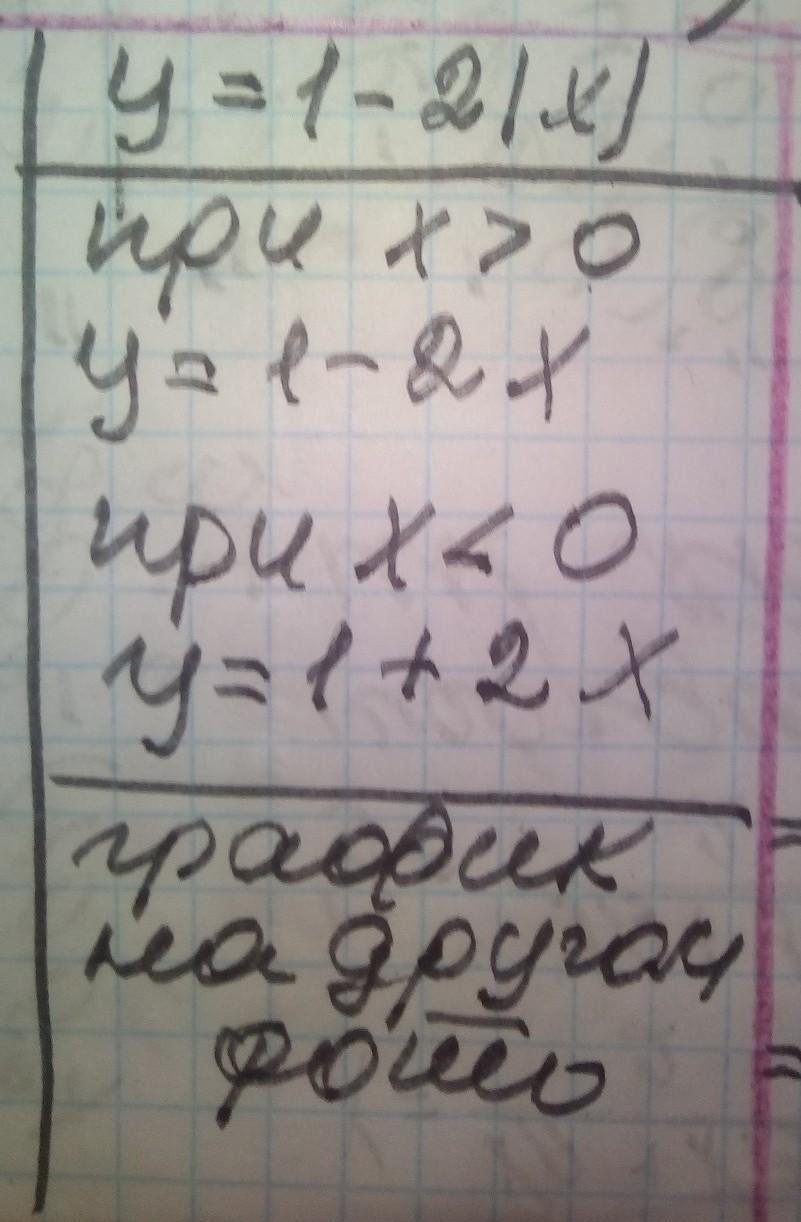 y = 1 - 2|x|
при x > 0
y = 1 - 2x
при x < 0
y = 1 + 2x
график
на другом
фото